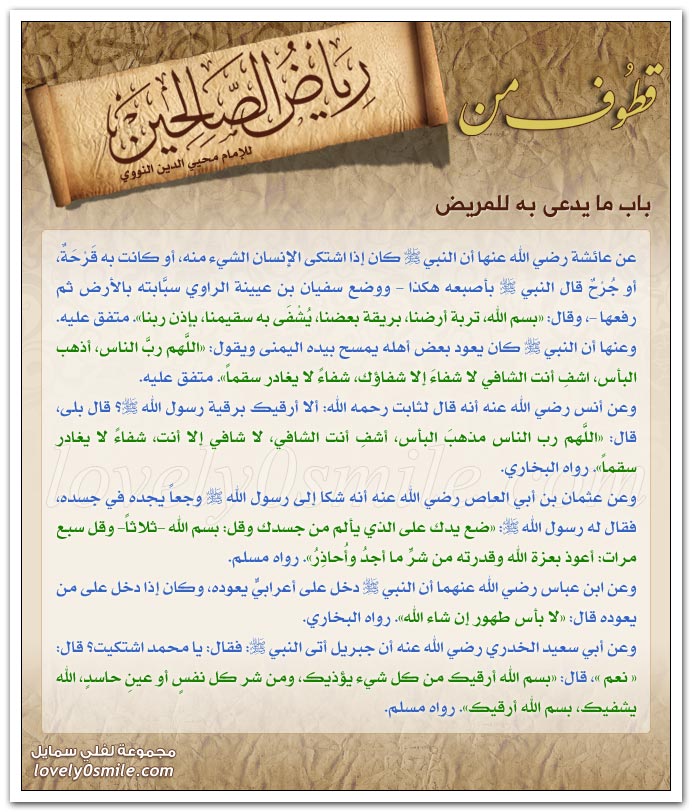 قطوف من
رِيَاضُ الصَّالِحِيْن
للإمام محيي الدين النووي
باب ما يدعى به للمريض
عن عائشة رضي الله عنها أن النبي ﷺ كان إذا اشتكى الإنسان الشيء منه، أو كانت به قَرْحَةٌ،
أو جُرْحٌ قال النبي ﷺ بأصبعه هكذا - ووضع سفيان بن عيينة الراوي سبَّابته بالأرض ثم
رفعها -، وقال: «بسم الله، تربة أرضنا، بريقة بعضنا، يُشْفَى به سقيمنا، بإذن ربنا». متفق عليه.
وعنها أن النبي ﷺ كان يعود بعض أهله يمسح بيده اليمنى ويقول: «اللَّهم ربَّ الناس، أذهب
البأس، اشفِ أنت الشافي لا شفاءَ إلا شفاؤك، شفاءً لا يغادر سقماً». متفق عليه.
وعن أنس رضي الله عنه أنه قال لثابت رحمه الله: ألا أرقيك برقية رسول الله ﷺ؟ قال بلى،
قال: «اللَّهم رب الناس مذهبَ البأس، أشفِ أنت الشافي، لا شافي إلا أنت، شفاءً لا يغادر
سقماً». رواه البخاري.
وعن عثمان بن أبي العاص رضي الله عنه أنه شكا إلى رسول الله ﷺ وجعاً يجده في جسده،
فقال له رسول الله ﷺ: «ضع يدك على الذي يألم من جسدك وقل: بسم الله -ثلاثاً- وقل سبع
مرات: أعوذ بعزة الله وقدرته من شرِّ ما أجدُ وأُحاذِرُ». رواه مسلم.
وعن ابن عباس رضي الله عنهما أن النبي ﷺ دخل على أعرابيٍّ يعوده، وكان إذا دخل على من
يعوده قال: «لا بأس طهور إن شاء الله». رواه البخاري.
وعن أبي سعيد الخدري رضي الله عنه أن جبريل أتى النبي ﷺ: فقال: يا محمد اشتكيت؟ قال:
« نعم »، قال: «بسم الله أرقيك من كل شيء يؤذيك، ومن شر كل نفسٍ أو عينِ حاسدٍ، الله
يشفيك، بسم الله أرقيك». رواه مسلم.
lovely0smile.com
مجموعة لفلي سمايل
lovely0smile.com